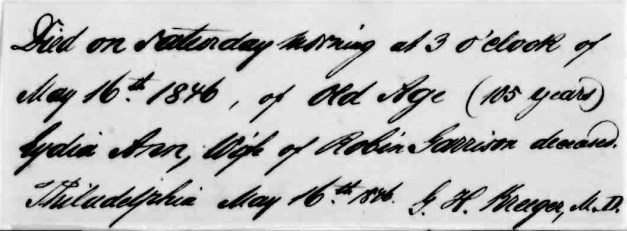 Died on Saturday Morning at 3 o'clock of
May 16th. 1846, of Old Age (105 years)
Lydia Ann, Wife of Robin Garrison deceased.
Philadelphia May 16th 1846. G. H. Kreeger, M.D.